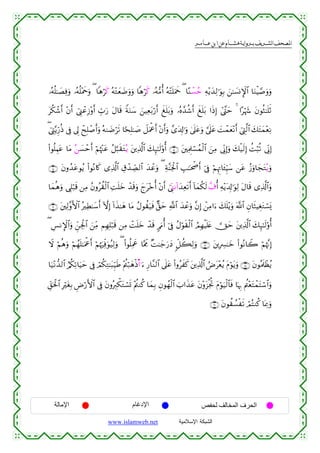 المصحف الشريف برواية هشام عن ابن عامر
وَوَصَّيْنَا ٱلْإِنسَٰنَ بِوَٰلِدَيْهِ حُسْنًا ۖ حَمَلَتْهُ أُمُّهُۥ كَرْهًا وَوَضَعَتْهُ كَرْهًا ۖ وَحَمْلُهُۥ وَفِصَٰلُهُۥ
ثَلَٰثُونَ شَهْرًا ۚ حَتَّىٰٓ إِذَا بَلَغَ أَشُدَّهُۥ وَبَلَغَ أَرْبَعِينَ سَنَةً قَالَ رَبِّ أَوْزِعْنِىٓ أَنْ أَشْكُرَ
نِعْمَتَكَ ٱلَّتِىٓ أَنْعَمْتَ عَلَىَّ وَعَلَىٰ وَٰلِدَىَّ وَأَنْ أَعْمَلَ صَٰلِحًا تَرْضَىٰهُ وَأَصْلِحْ لِى فِى ذُرِّيَّتِىٓ ۖ
إِنِّى تُبْتُ إِلَيْكَ وَإِنِّى مِنَ ٱلْمُسْلِمِينَ أُو۟لَٰٓئِكَ ٱلَّذِينَ يُتَقَبَّلُ عَنْهُمْ أَحْسَنُ مَا عَمِلُوا۟
وَيُتَجَاوَزُ عَن سَيِّـَٔاتِهِمْ فِىٓ أَصْحَٰبِ ٱلْجَنَّةِ ۖ وَعْدَ ٱلصِّدْقِ ٱلَّذِى كَانُوا۟ يُوعَدُونَ
وَٱلَّذِى قَالَ لِوَٰلِدَيْهِ أُفَّ لَّكُمَآ أَتَعِدَآنِّىٓ أَنْ أُخْرَجَ وَقَدْ خَلَتِ ٱلْقُرُونُ مِن قَبْلِى وَهُمَا
يَسْتَغِيثَانِ ٱللَّهَ وَيْلَكَ ءَامِنْ إِنَّ وَعْدَ ٱللَّهِ حَقٌّ فَيَقُولُ مَا هَٰذَآ إِلَّآ أَسَٰطِيرُ ٱلْأَوَّلِينَ
أُو۟لَٰٓئِكَ ٱلَّذِينَ حَقَّ عَلَيْهِمُ ٱلْقَوْلُ فِىٓ أُمَمٍ قَدْ خَلَتْ مِن قَبْلِهِم مِّنَ ٱلْجِنِّ وَٱلْإِنسِ ۖ
إِنَّهُمْ كَانُوا۟ خَٰسِرِينَ وَلِكُلٍّ دَرَجَٰتٌ مِّمَّا عَمِلُوا۟ ۖ وَلِنُوَفِّيَهُمْ أَعْمَٰلَهُمْ وَهُمْ لَا
يُظْلَمُونَ وَيَوْمَ يُعْرَضُ ٱلَّذِينَ كَفَرُوا۟ عَلَى ٱلنَّارِ ءَا۬ذْهَبْتُمْ طَيِّبَٰتِكُمْ فِى حَيَاتِكُمُ ٱلدُّنْيَا
وَٱسْتَمْتَعْتُم بِهَا فَٱلْيَوْمَ تُجْزَوْنَ عَذَابَ ٱلْهُونِ بِمَا كُنتُمْ تَسْتَكْبِرُونَ فِى ٱلْأَرْضِ بِغَيْرِ ٱلْحَقِّ
وَبِمَا كُنتُمْ تَفْسُقُونَ
الحرف المخالف لحفص الإدغام الإمالة
الشبكة الإسلامية www.islamweb.net